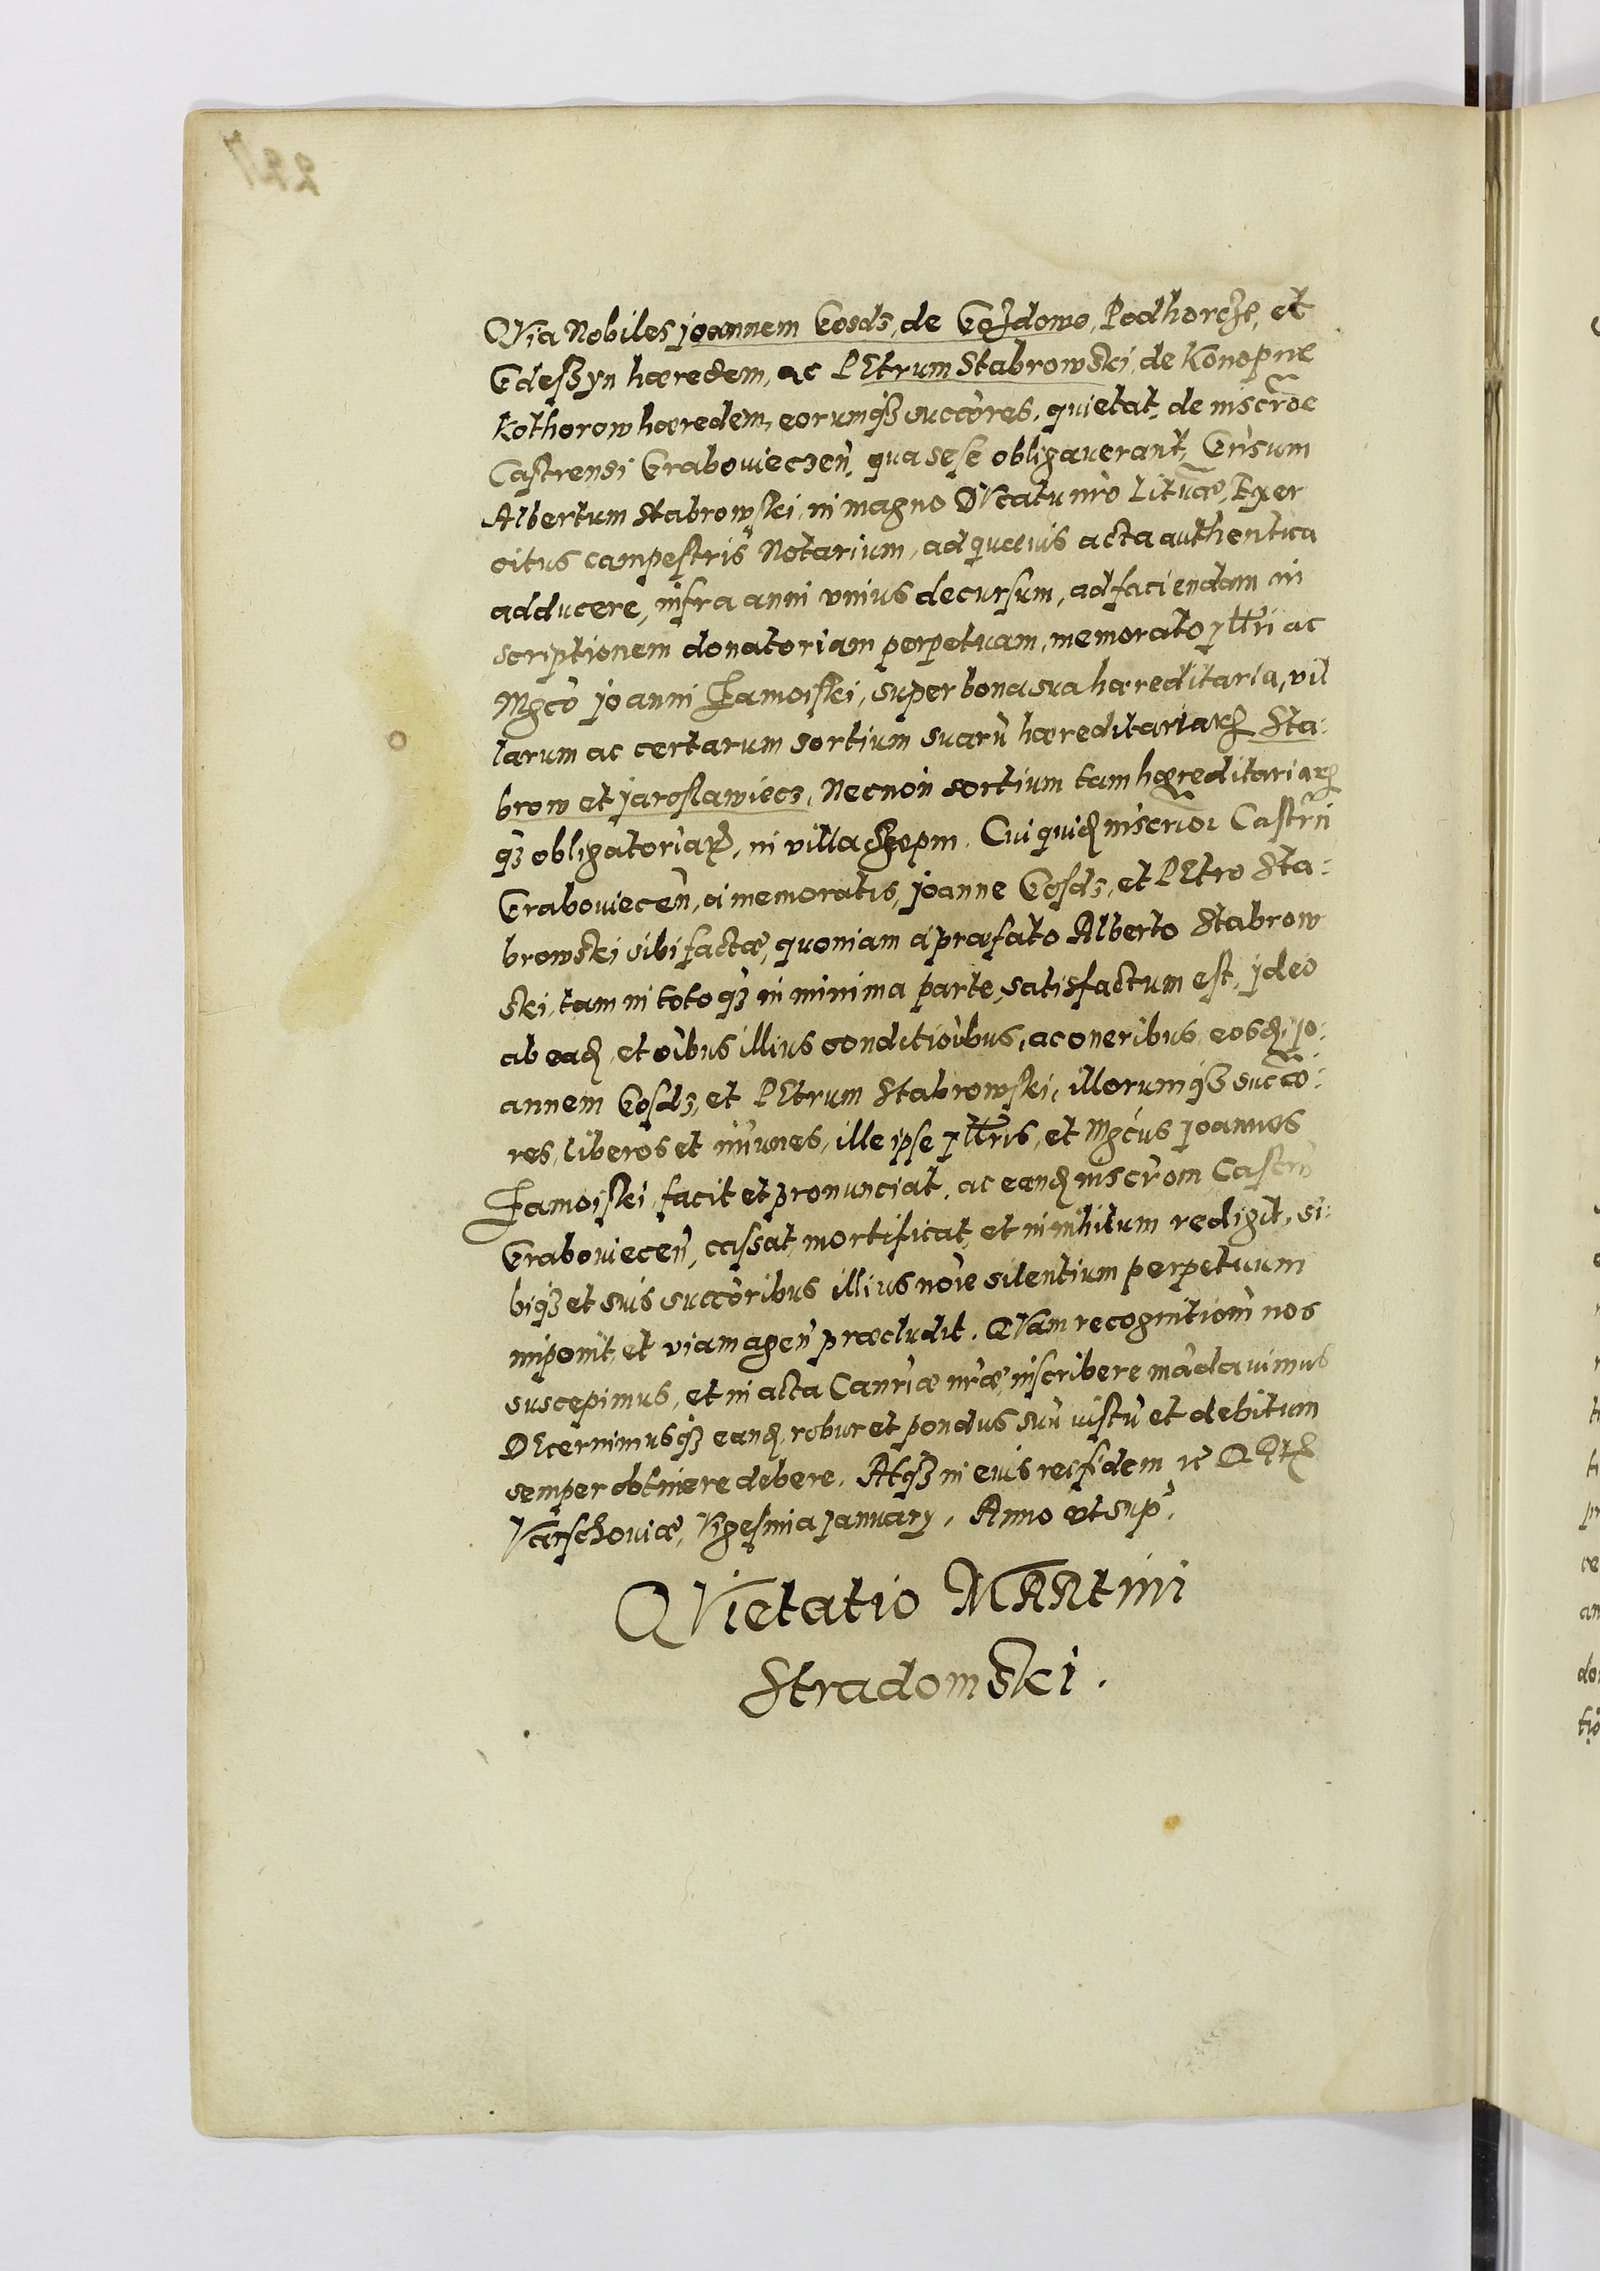 QVia Nobiles joannem Gosdz, de Gozdowo, Podhorcze, et
Gdeszyn hæredem, ac PEtrum Stabrowski, de Konopne
Kothorow hæredem, eorumqȝ succöres, quietat, de inscr̃oe
Castrensi Graboviecien̄, qua sese obligaverant, Gn̄sum
Albertum Stabrowski, in magno DVcatu nr̄o Litvaæ, Exer
citus campestris Notarium, ad quævis acta authentica
adducere, infra anni vnius decursum, ad faciendam in
scriptionem donatoriam perpetuam, memorato jllri ac
Mgco joanni Zamoiski, super bona sua hæreditaria, vil
larum ac certarum sortium suarū hæreditariaꝝ Sta-
brow et jaroslawiecz, Necnon sortium tam hæreditariaꝝ
qȝ obligatoriaꝝ, in villa Czopin. Cui quid inscrioi Castrn̄
Graboviecen̄, a memoratis, joanne Gosdz, et PEtro Sta-
browski sibi factæ, quoniam a præfato Alberto Stabrow
ski, tam in toto qȝ in minima parte, satisfactum est, jdeo
ab ead, et oībus illius conditioībus, ac oneribus, eosd, jo-
annem Gosdz, et PEtrum Stabrowski, illorumqȝ succo-
res, liberos et imunes, ille ipse jllris, et Mgcus joannes
Zamoiski, facit et pronunciat, ac eand inscrōm Castrn̄
Graboviecen̄, cassat, mortificat, et in nihilum redigit, si-
biqȝ et suis succoribus illius noīe silentium perpetuum
imponit, et viam agen̄ præcludit. QVam recognitionī nos
suscepimus, et in acta Canr̄iæ nr̄æ, inscribere mādavimus
DEcernimusqȝ eand, robur et pondus suū iustū et debitum
semper obtinere debere. Atqȝ in eius rei fidem ꝛc
Varschoviæ, Vigesima january, Anno vt sup̄.
QVietatio MARtini
Stradomski.